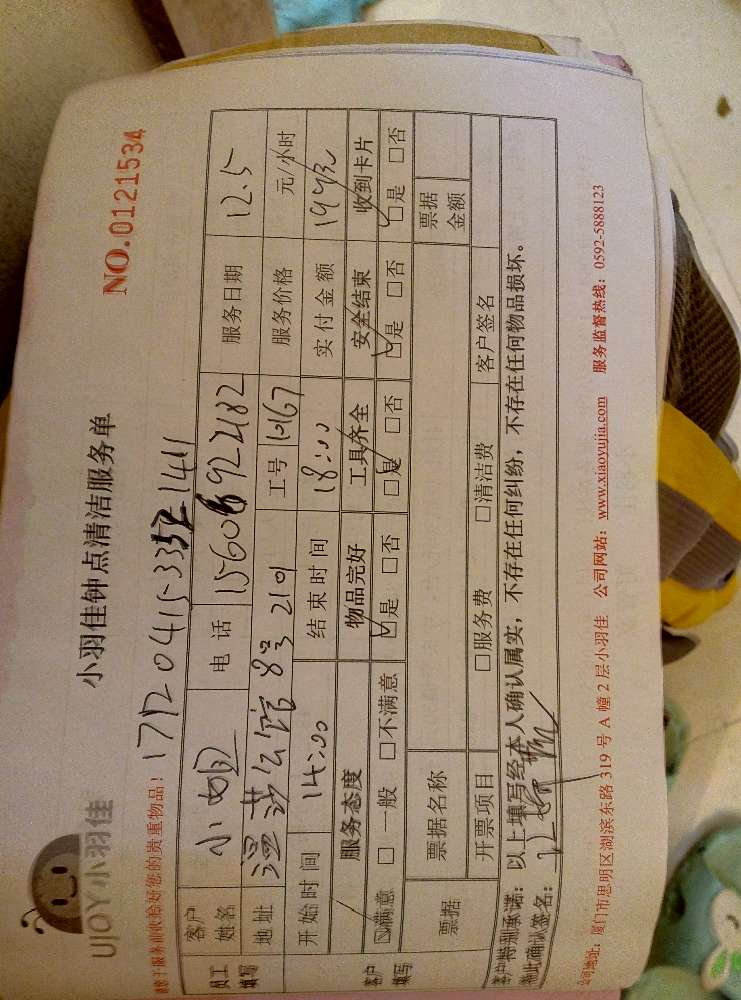 UJOY小羽佳
小羽佳钟点清洁服务单
NO.0121534
请您于服务前收拾好您的贵重物品！
员工填写 客户姓名 小 电话 服务日期 12.5
地址 公馆 8号 2101 工号 服务价格 元/小时
客户填写 开始时间 14:00 结束时间 18:00 实付金额
服务态度 物品完好 工具齐全 安全结束 收到卡片
☑满意 □一般 □不满意 ☑是 □否 ☑是 □否 ☑是 □否 ☑是 □否
票据 票据名称 票据金额
开票项目 □服务费 □清洁费 客户签名
客户特别承诺：以上填写经本人确认属实，不存在任何纠纷，不存在任何物品损坏。
特此确认签名：
公司地址：厦门市思明区湖滨东路 319 号 A 幢 2 层小羽佳 公司网站：www.xiaoyujia.com 服务监督热线：0592-5888123